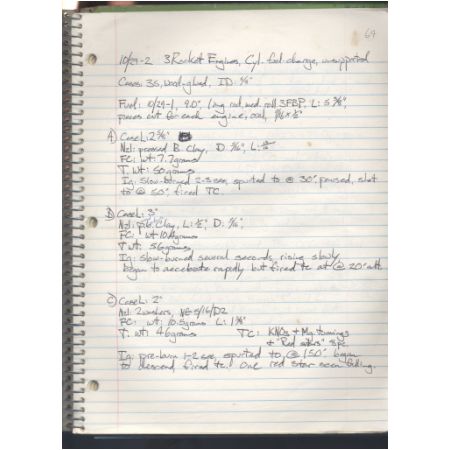 69
10/29-2 3 Rocket Engines, Cyl. fuel charge, unsupported
Cases: 3S, wood-glued, ID: 
Fuel: 10/29-1, 9.0", long rod, med. roll 3FBP, L: 5
pieces cut for each engine, oval,
A) Case L: 2
Nzl: pressed B. Clay, D: L:
FC: wt: 7.7 grams
T. Wt: 50 grams
Ig: slow-burned 2-3 sec, spurted to @ 30' paused, shot
to @ 50', fired TC
B) Case L: 3"
Nzl: Clay, L: D:
FC: wt 10 grams
T wt: 56 grams
Ig: slow-burned several seconds, rising slowly
began to accelerate rapidly but fired tc at @ 20' alt.
C) Case L: 2"
Nzl: 2 washers, 5/16/D2
FC: wt: 10.5 grams L: 1
T. wt: 46 grams TC: KNO3 + Mg. turnings
+ "Red stars" spc.
Ig: pre-burn 1-2 sec, spurted to @ 150' began
to descend fired tc. One red star seen falling.